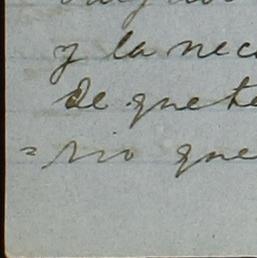 y la nece
de que te
=rio que